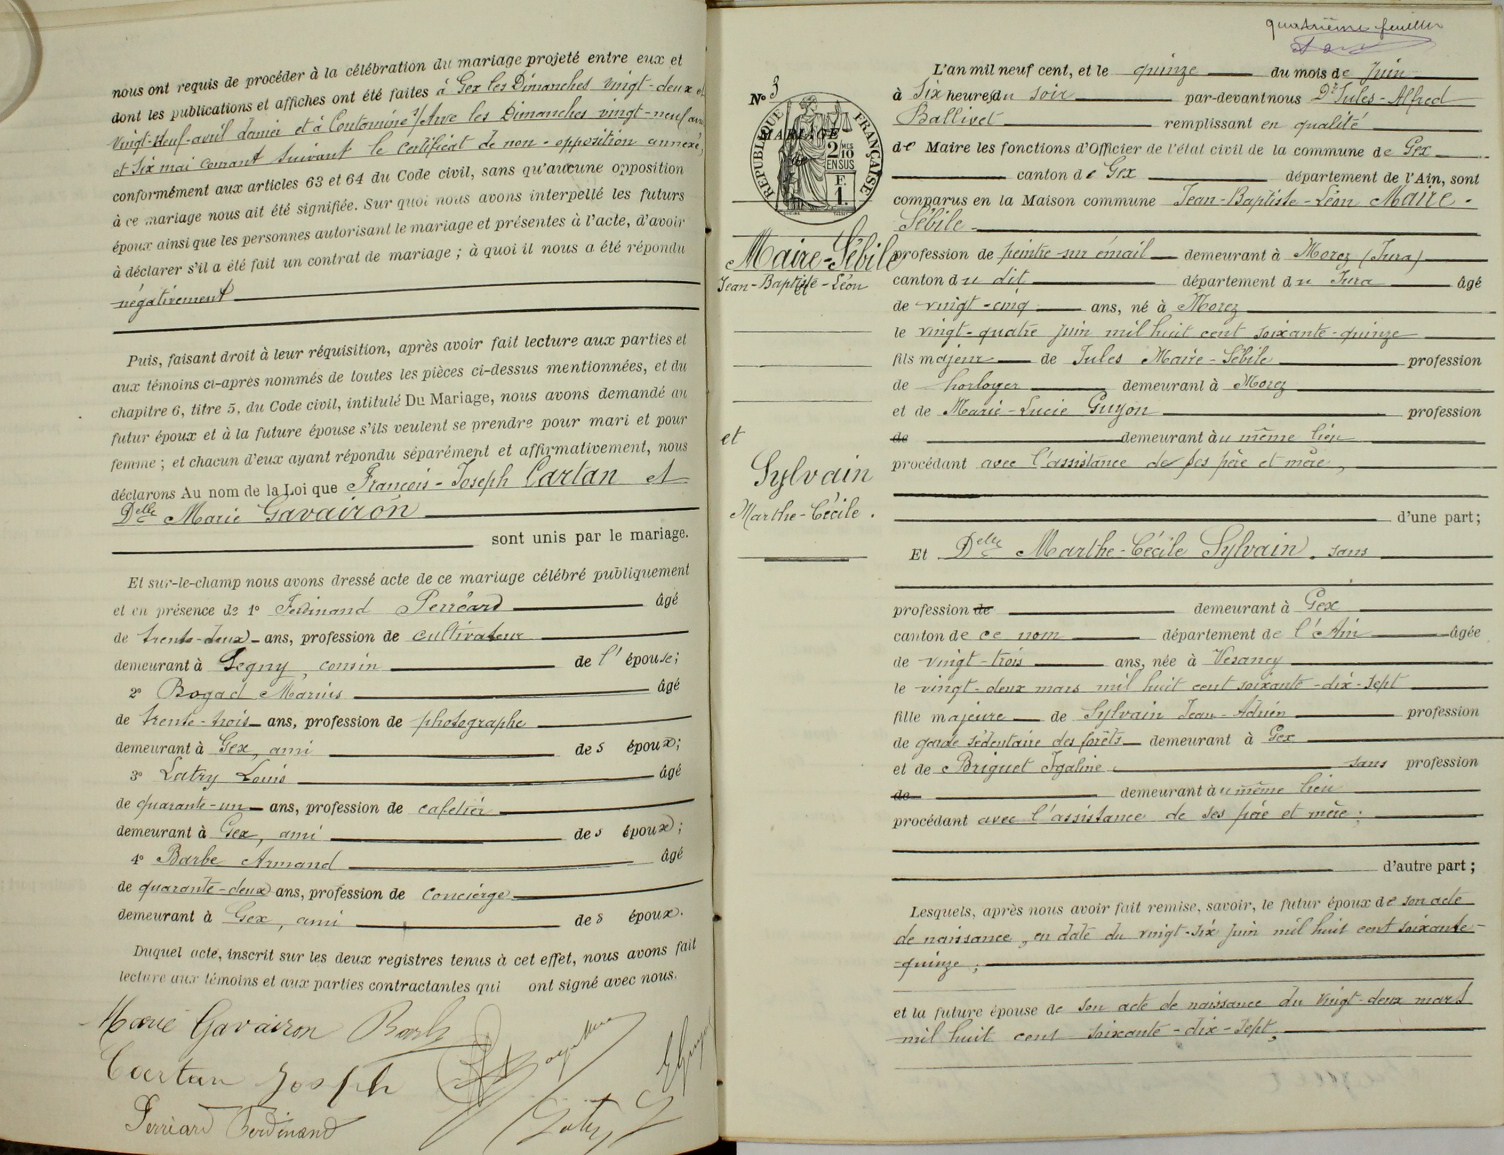 nous ont requis de procéder à la célébration du mariage projeté entre eux et
dont les publications et affiches ont été faites à Gex les Dimanches vingt-deux et
vingt-neuf avril dernier et à Contamine s/Arve les Dimanches vingt-neuf avril
et six mai courant suivant le certificat de non-opposition annexé,
conformément aux articles 63 et 64 du Code civil, sans qu'aucune opposition
à ce mariage nous ait été signifiée. Sur quoi nous avons interpellé les futurs
époux ainsi que les personnes autorisant le mariage et présentes à l'acte, d'avoir
à déclarer s'il a été fait un contrat de mariage ; à quoi il nous a été répondu
négativement
Puis, faisant droit à leur réquisition, après avoir fait lecture aux parties et
aux témoins ci-après nommés de toutes les pièces ci-dessus mentionnées, et du
chapitre 6, titre 5, du Code civil, intitulé Du Mariage, nous avons demandé au
futur époux et à la future épouse s'ils veulent se prendre pour mari et pour
femme ; et chacun d'eux ayant répondu séparément et affirmativement, nous
déclarons Au nom de la Loi que François-Joseph Cartan et
Delle Marie Gavairon
sont unis par le mariage.
Et sur-le-champ nous avons dressé acte de ce mariage célébré publiquement
et en présence de 1° Ferdinand Perréard âgé
de trente-deux ans, profession de cultivateur
demeurant à Segny, cousin de l' épouse;
2° Bogad Marius âgé
de trente-trois ans, profession de photographe
demeurant à Gex, ami des époux;
3° Latry Louis âgé
de quarante-un ans, profession de cafetier
demeurant à Gex, ami des époux;
4° Barbe Armand âgé
de quarante-deux ans, profession de concierge
demeurant à Gex, ami des époux.
Duquel acte, inscrit sur les deux registres tenus à cet effet, nous avons fait
lecture aux témoins et aux parties contractantes qui ont signé avec nous.
Marie Gavairon Barbe
Cartan Joseph
Perréard Ferdinand
quatrième feuillet
N° 3
RÉPUBLIQUE FRANÇAISE
2/10 EN SUS
F. 1.
MARIAGE
de
Maire-Sébile
Jean-Baptiste-Léon
et
Sylvain
Marthe-Cécile.
L'an mil neuf cent, et le quinze du mois de Juin
à six heures du soir par-devant nous Dr Jules-Alfred
Ballivet remplissant en qualité
de Maire les fonctions d'Officier de l'état civil de la commune de Gex
canton de Gex département de l'Ain, sont
comparus en la Maison commune Jean-Baptiste-Léon Maire-
Sébile
profession de peintre sur émail demeurant à Morez (Jura)
canton du dit département du Jura âgé
de vingt-cinq ans, né à Morez
le vingt-quatre juin mil huit cent soixante-quinze
fils majeur de Jules Maire-Sébile profession
de horloger demeurant à Morez
et de Marie-Lucie Guyon profession
de demeurant au même lieu
procédant avec l'assistance de ses père et mère,
d'une part;
Et Delle Marthe-Cécile Sylvain, sans
profession de demeurant à Gex
canton de ce nom département de l'Ain âgée
de vingt-trois ans, née à Vesancy
le vingt-deux mars mil huit cent soixante-dix-sept
fille majeure de Sylvain Jean-Adrien profession
de garde sédentaire des forêts demeurant à Gex
et de Briguet Igaline sans profession
de demeurant au même lieu
procédant avec l'assistance de ses père et mère;
d'autre part;
Lesquels, après nous avoir fait remise, savoir, le futur époux de son acte
de naissance, en date du vingt-six juin mil huit cent soixante-
-quinze;
et la future épouse de son acte de naissance du vingt-deux mars
mil huit cent soixante-dix-sept,